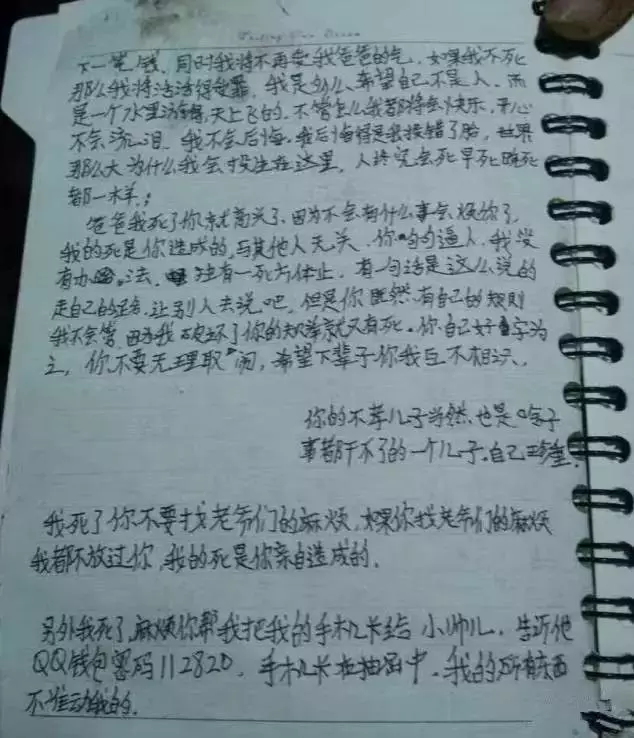 下一笔钱，同时我将不再受我爸爸的气，如果我不死
那么我将活活得受罪，我是多么希望自己不是人，而
是一个水里活得，天上飞的，不管怎么我都将会快乐，开心
不会流泪，我不会后悔，我后悔得是我投错了胎，世界
那么大为什么我会投生在这里，人终究会死早死晚死
都一样，；
爸爸我死了你就高兴了，因为不会有什么事会烦你了，
我的死是你造成的，与其他人无关，你句句逼人，我没
有办法，有一死方休止，有一句话是这么说的
走自己的路，让别人去说吧，但是你既然有自己的规则
我不会管，因为我破坏了你的规举就又有死，你自己好自为
之，你不要无理取闹，希望下辈子你我互不相识。
你的不孝儿子当然也是啥子
事都干不了的一个儿子，自己
我死了你不要找老爷们的麻烦，如果你找老爷们的麻烦
我都不放过你，我的死是你亲自造成的，
另外我死了，麻烦你帮我把我的手机卡给小帅儿，告诉他
QQ钱包密码112820，手机卡在抽屉中，我的所有东西
不准动我的，